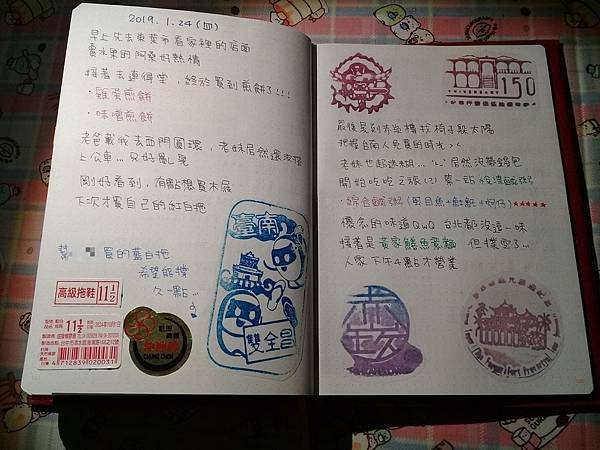 2019.1.24(四)
早上先去東菜市看家裡的店面
賣水果的阿桑好熱情
接著去連得堂，終於買到煎餅了!!!
・雞蛋煎餅
・味噌煎餅
老爸載我去西門圓環，老妹居然還沒搭
上公車...只好亂晃
剛好看到，有點想買木屐
下次才買自己的紅白拖
買的藍白拖
希望能撐
久一點...
高級拖鞋 11½
11½
4712839020031
CHUNG CHEN
臺南
雙全昌
最後晃到赤崁樓找椅子躲太陽
把握台南人免費的時光><
老妹也超迷糊... 居然沒帶錢包
開始吃吃之旅(?) 第一站
・綜合鹹粥(虱目魚+魠魠+蚵仔)★★★★★
懷念的味道QwQ 台北都沒這一味
接著是黃家鱔魚意麵 但撲空了...
人家下午4點才營業
150
赤崁